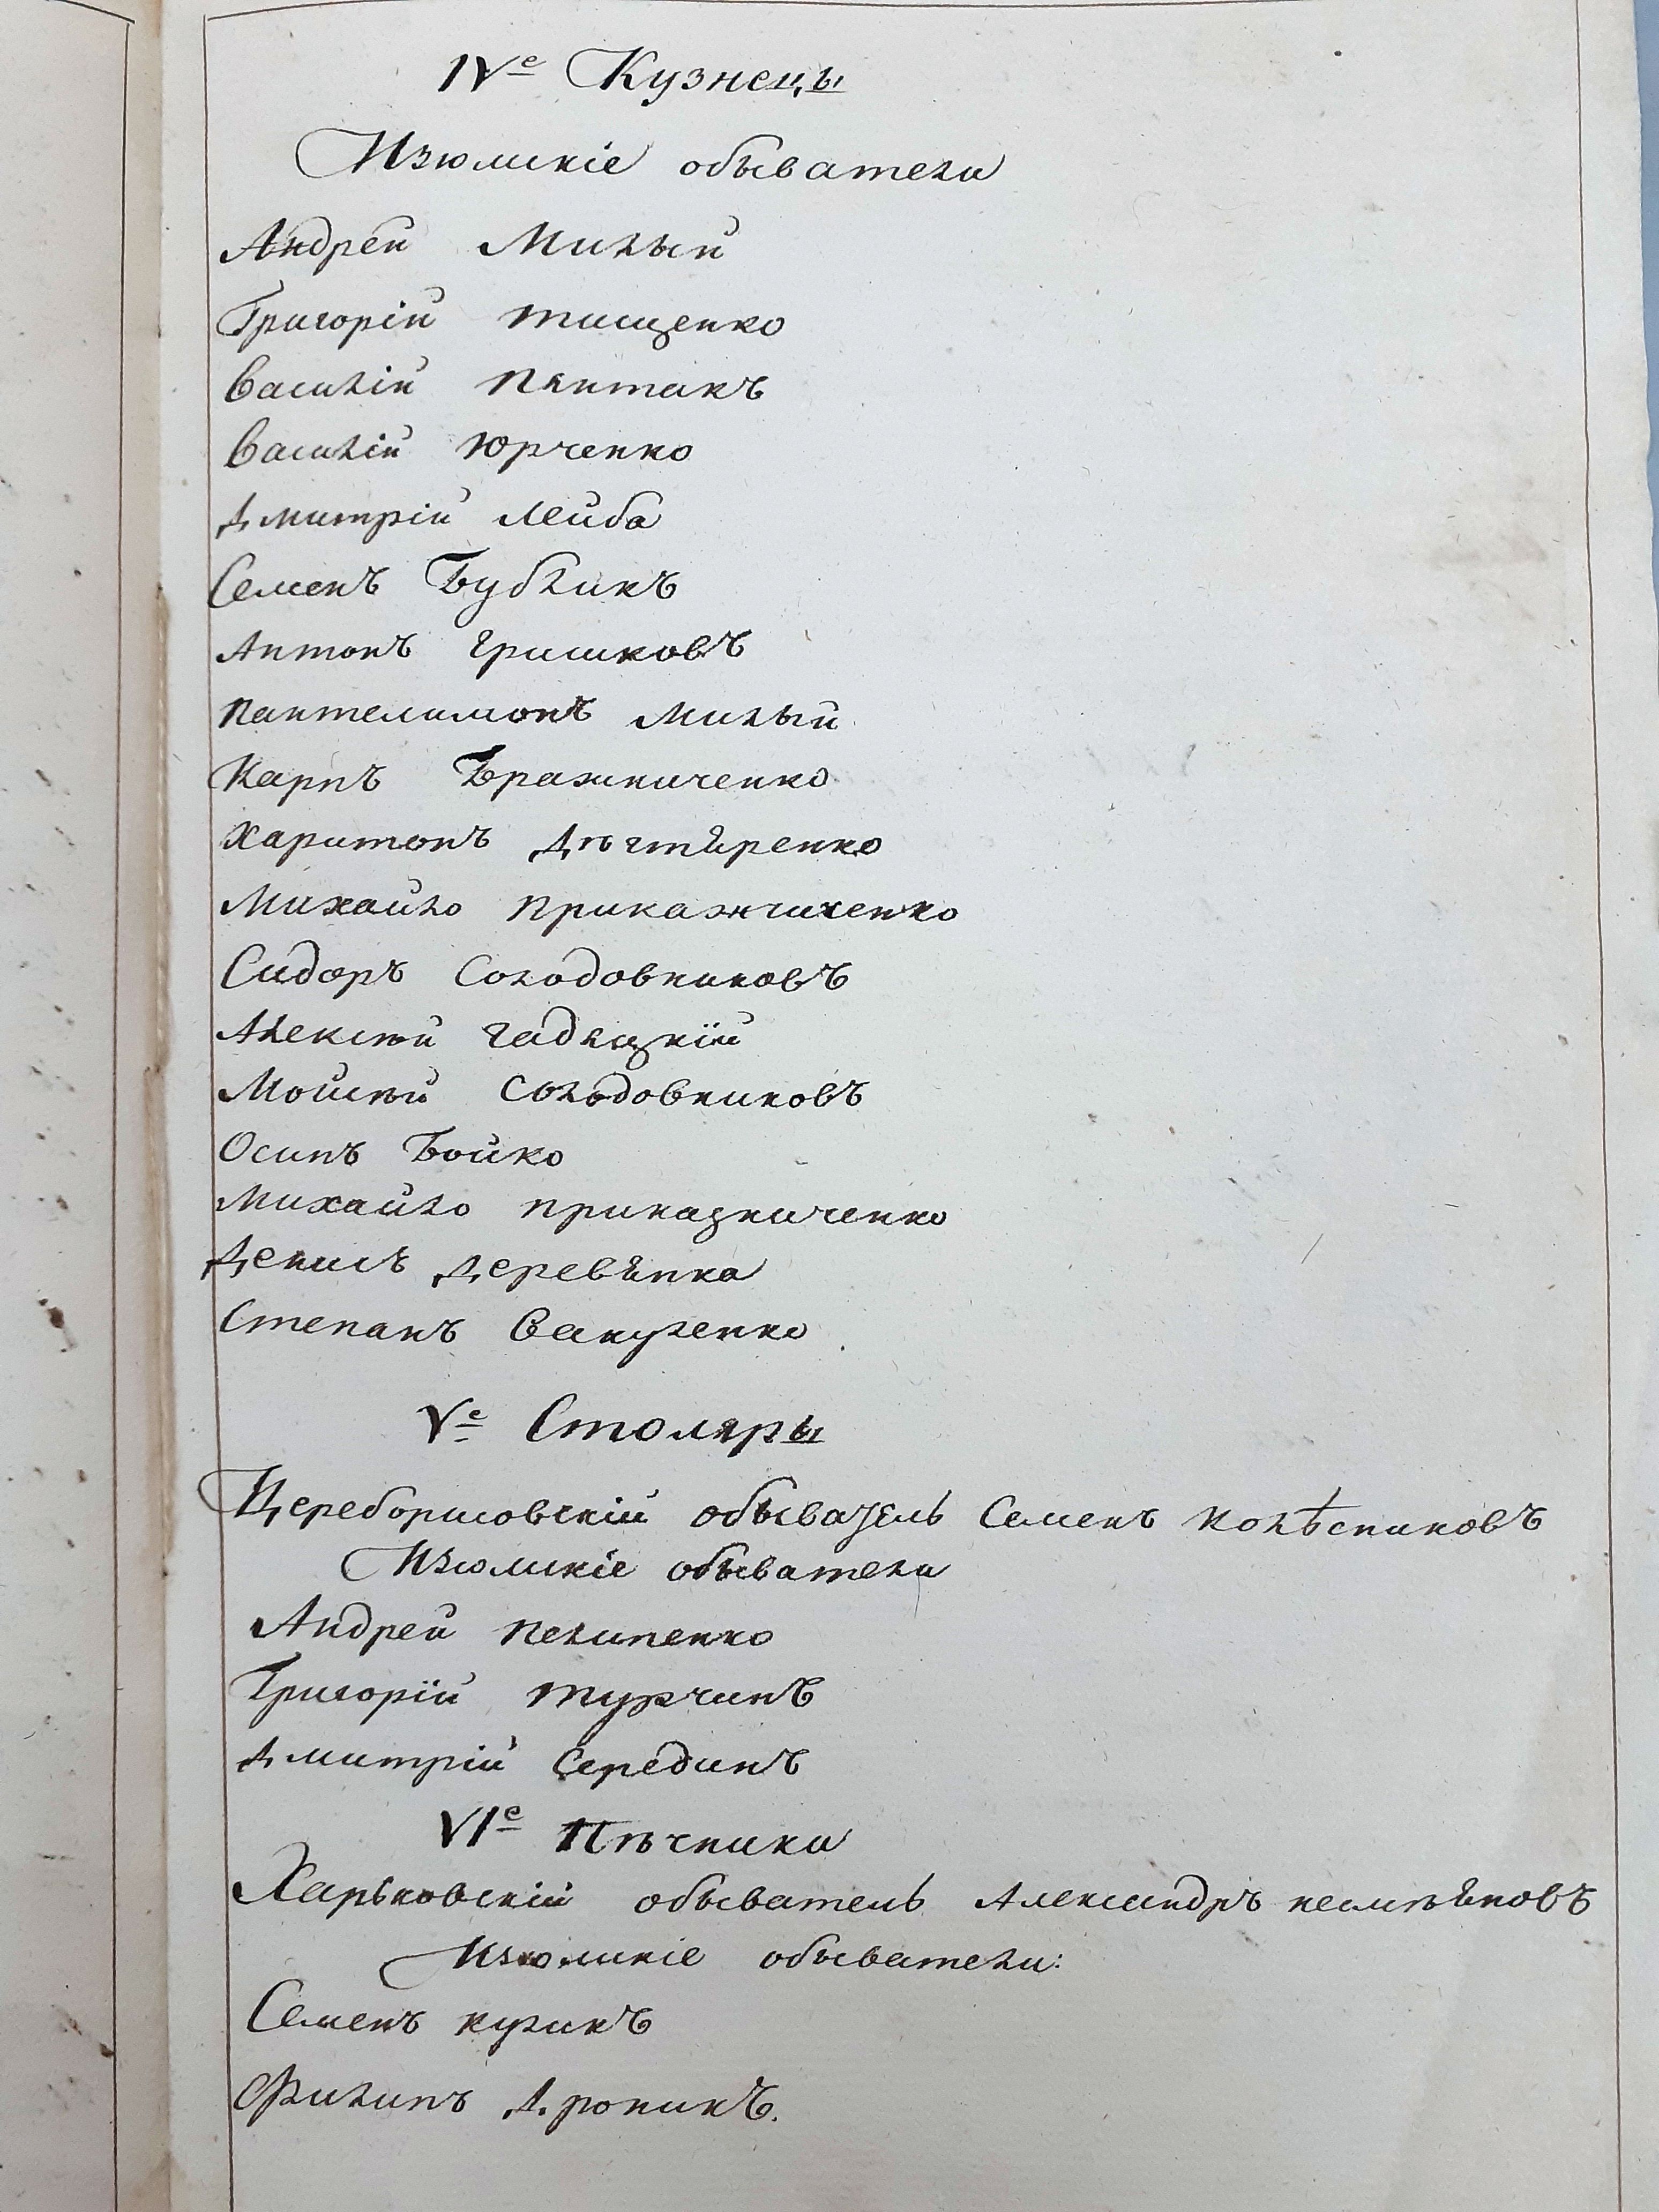 IVе Кузнецы
Изюмскіе обыватели
Андрей Милый
Григорій Тищенко
Василій Пянтакъ
Василій Юрченко
Дмитрій Лейба
Семенъ Бубликъ
Антонъ Гришковъ
Пантелимонъ Милый
Карпъ Бражниченко
Харитонъ Дѣгтяренко
Михайло Прикажчиченко
Сидоръ Солодовниковъ
Алексѣй Гадяцкій
Мойсѣй Солодовниковъ
Осипъ Бойко
Михайло Приказниченко
Денисъ Деревянка
Степанъ Вакуленко
Vе Столяры
Цереборисовскій обыватель Семенъ Колѣсниковъ
Изюмскіе обыватели
Андрей Пелипенко
Григорій Турчинъ
Дмитрій Серединъ
VIе Пѣчники
Харьковскій обыватель Александръ
Изюмскіе обыватели:
Семенъ Куликъ
Филипъ Дроникъ.